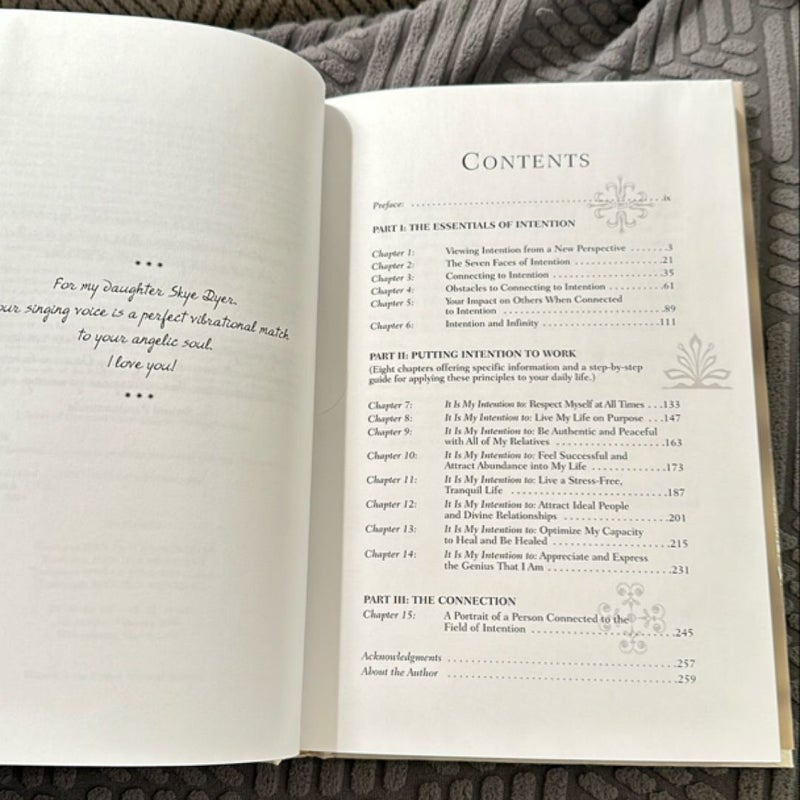 • • •
For my daughter Skye Dyer.
our singing voice is a perfect vibrational match
to your angelic soul.
I love you!
• • •
CONTENTS
Preface: ........................................ix
PART I: THE ESSENTIALS OF INTENTION
Chapter 1: Viewing Intention from a New Perspective .......3
Chapter 2: The Seven Faces of Intention ................21
Chapter 3: Connecting to Intention ....................35
Chapter 4: Obstacles to Connecting to Intention ..........61
Chapter 5: Your Impact on Others When Connected
to Intention ..............................89
Chapter 6: Intention and Infinity ......................111
PART II: PUTTING INTENTION TO WORK
(Eight chapters offering specific information and a step-by-step
guide for applying these principles to your daily life.)
Chapter 7: It Is My Intention to: Respect Myself at All Times ...133
Chapter 8: It Is My Intention to: Live My Life on Purpose ...147
Chapter 9: It Is My Intention to: Be Authentic and Peaceful
with All of My Relatives ....................163
Chapter 10: It Is My Intention to: Feel Successful and
Attract Abundance into My Life ..............173
Chapter 11: It Is My Intention to: Live a Stress-Free,
Tranquil Life ............................187
Chapter 12: It Is My Intention to: Attract Ideal People
and Divine Relationships ...................201
Chapter 13: It Is My Intention to: Optimize My Capacity
to Heal and Be Healed .....................215
Chapter 14: It Is My Intention to: Appreciate and Express
the Genius That I Am ......................231
PART III: THE CONNECTION
Chapter 15: A Portrait of a Person Connected to the
Field of Intention .........................245
Acknowledgments ........................................257
About the Author ........................................259